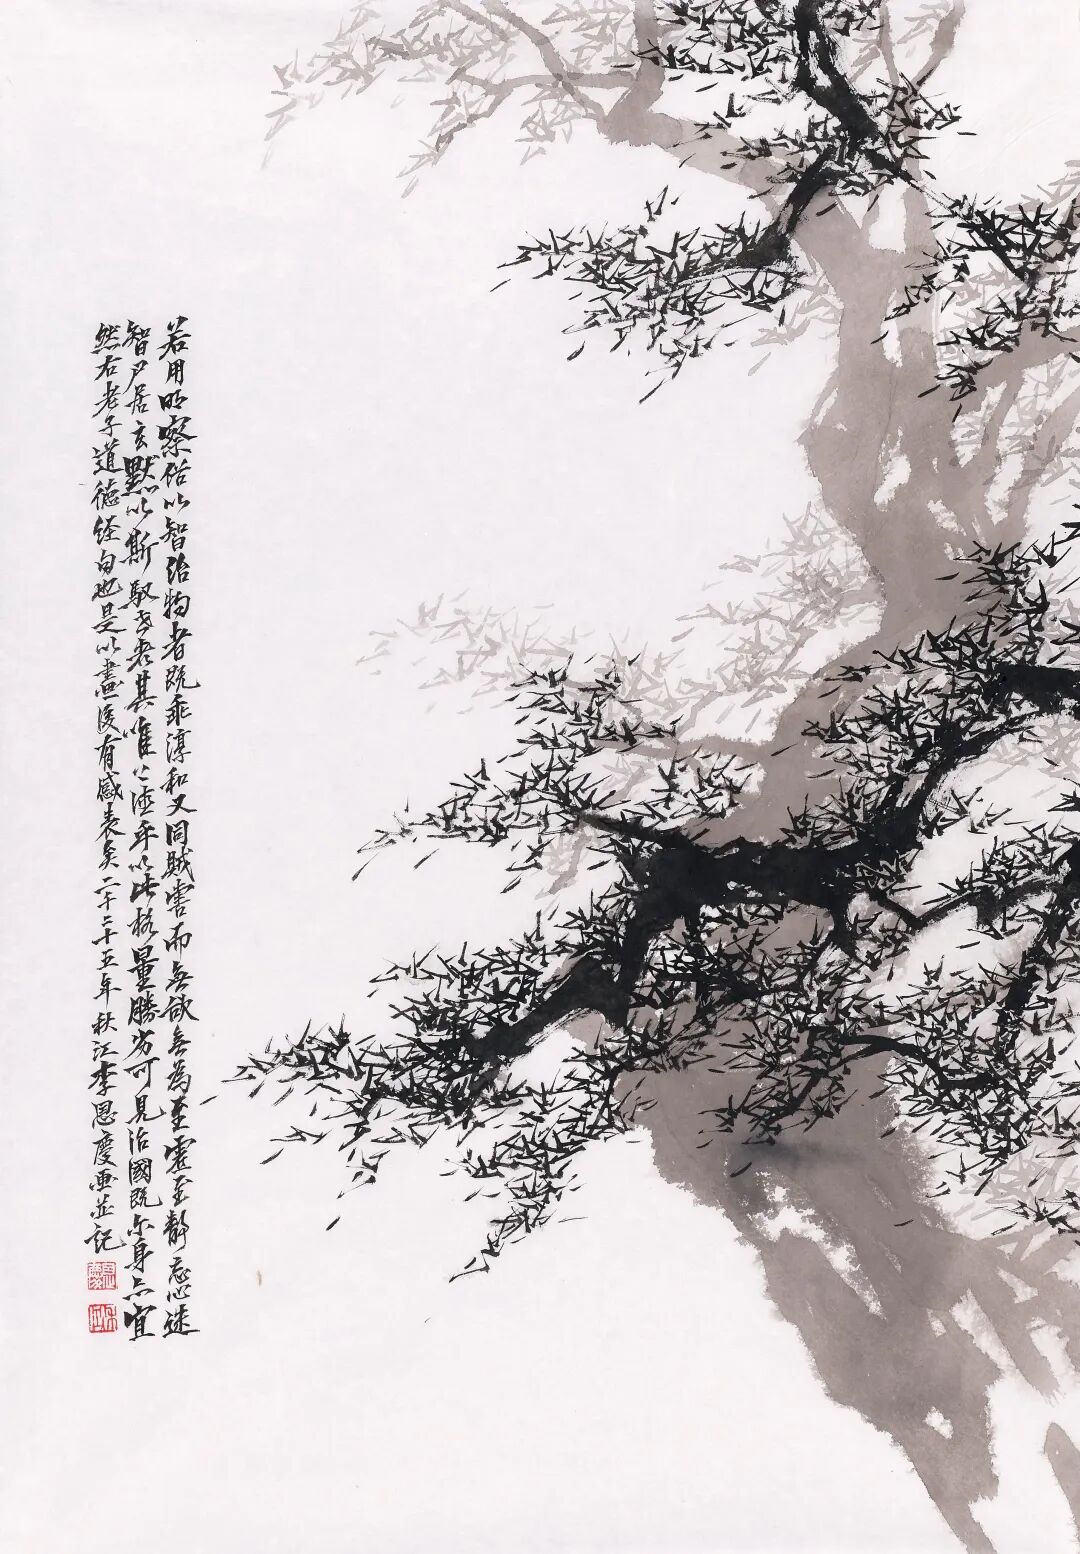 若用明察俗以智治物者既乖淳和又同賊害而無欲無為至虛至靜忘心遣
智尸居玄默以斯馭世者其唯上德乎以此格量勝劣可見治國既尔身亦宜
然右老子道德经句也是以畫後有感表矣二千二十五年秋江李恩慶画並記
恩慶